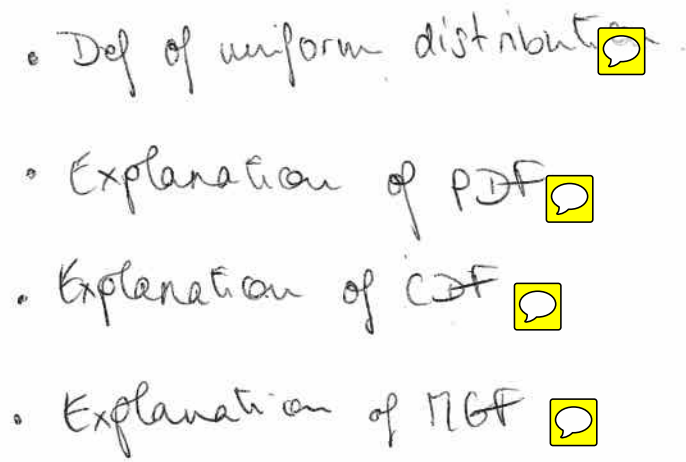 • Def of uniform distribution.
• Explanation of PDF
• Explanation of CDF
• Explanation of MGF